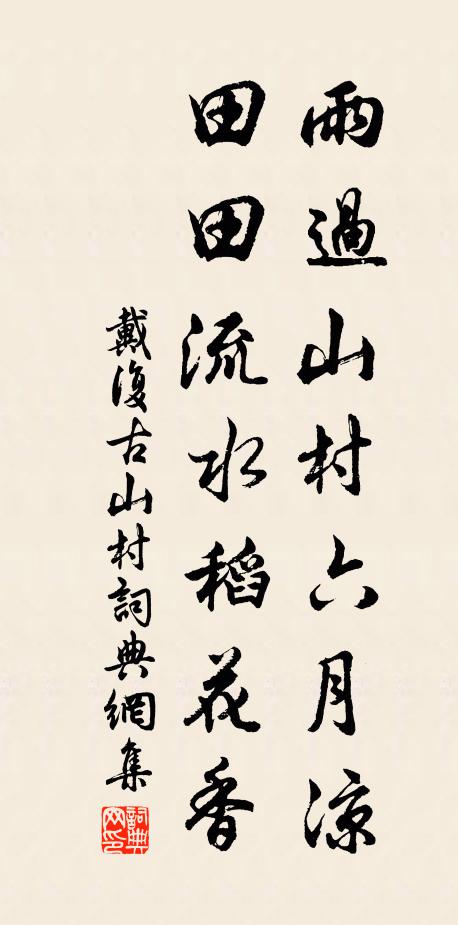 雨過山村六月涼
田田流水稻花香
戴復古山村詞典網集
詞典网印